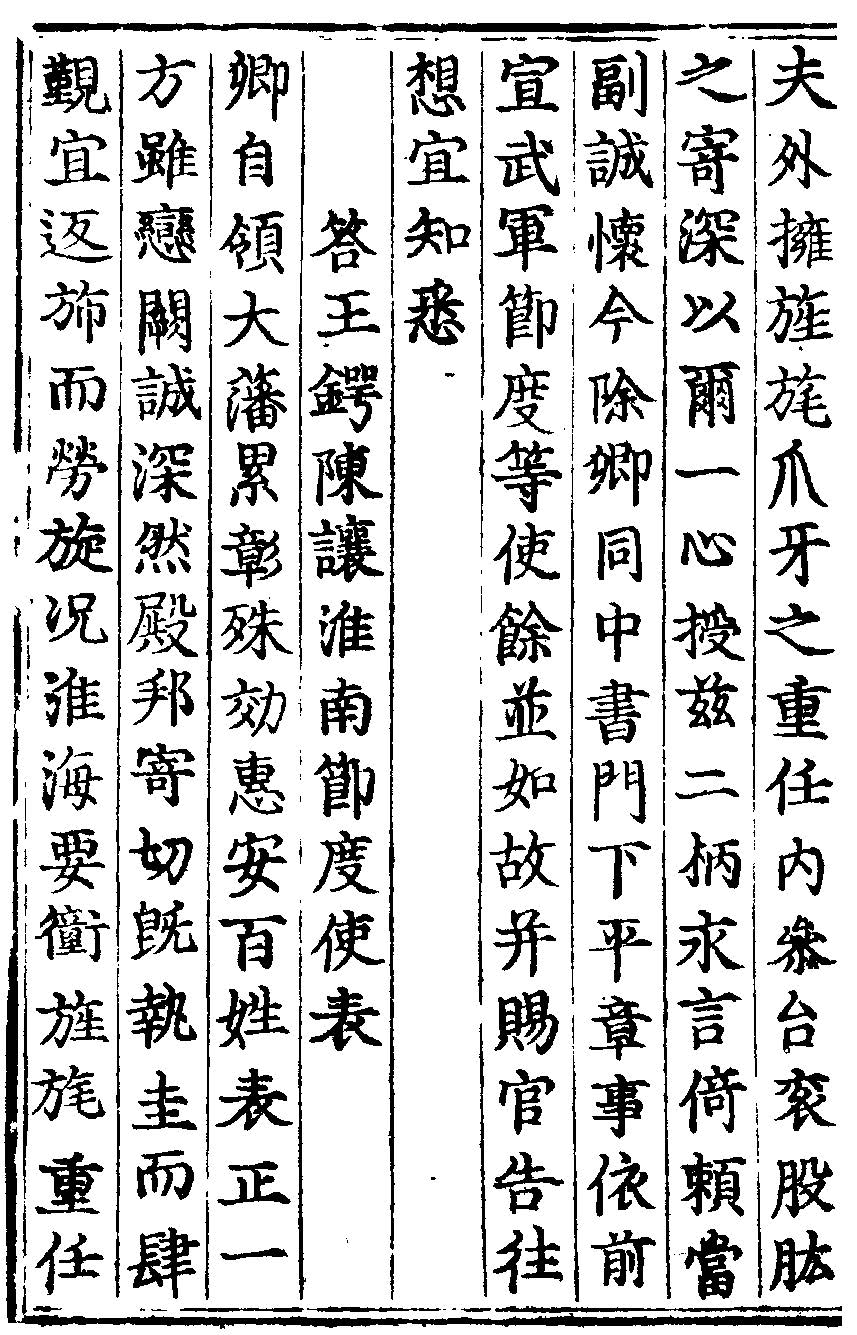 夫外擁旌旄爪牙之重任內叅台衮股肱
之寄深以爾一心授兹二柄求言倚賴當
副誠懷今除卿同中書門下平章事依前
宣武軍節度等使餘並如故并賜官告往
想宜知悉
答王鍔陳讓淮南節度使表
卿自領大藩累彰殊効惠安百姓表正一
方雖戀闕誠深然殿邦寄切旣執圭而肆
覲宜返斾而勞旋况淮海要衝旌旄重任